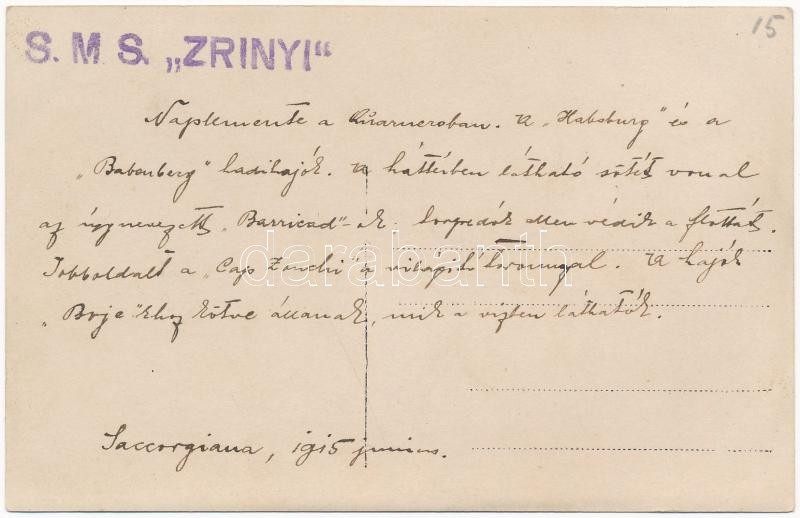 15
S. M. S. „ZRINYI“
Naplemente a Quarneroban. A „Habsburg” és a
„Babenberg” hadihajók. A háttérben látható sötét vonal
az úgynevezett „Barricad”-ok torpedók ellen védik a flottát.
Jobboldalt a „Cap a világító toronnyal. A hajók
„Boje”-khoz kötve állanak, mik a vizben láthatók.
darabanth
Saccorgiana, 1915 junius.